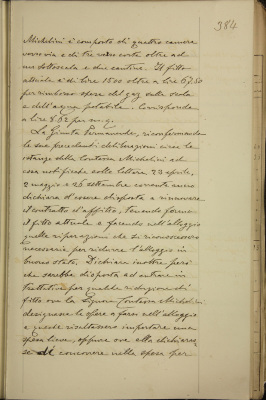 384
Michelini è composto di quattro camere
verso via e di tre verso corte oltre ad
una sottoscala e due cantine. Il fitto
attuale è di lire 1500 oltre a lire 67.50
per rimborso spese del gaz sulla scala
e dell'acqua potabile. Corrisponde
a lire 8.62 per m.q.
La Giunta Permanente, riconfermando
le sue precedenti deliberazioni circa le
istanze della Contessa Michelini ad
essa notificate colle lettere 23 aprile,
2 maggio e 26 settembre corrente anno
dichiara d'essere disposta a rinnovare
il contratto d'affitto, tenendo fermo
il fitto attuale e facendo nell'alloggio
quelle riparazioni che si riconoscessero
necessarie per ridurre l'alloggio in
buono stato. Dichiara inoltre però
che sarebbe disposta ad entrare in
trattative per qualche riduzione di
fitto ove la Signora Contessa Michelini
designasse le spese a farsi nell'alloggio
e queste risultassero importare una
spesa lieve, oppure ove ella dichiaras-
se di concorrere nella spesa per